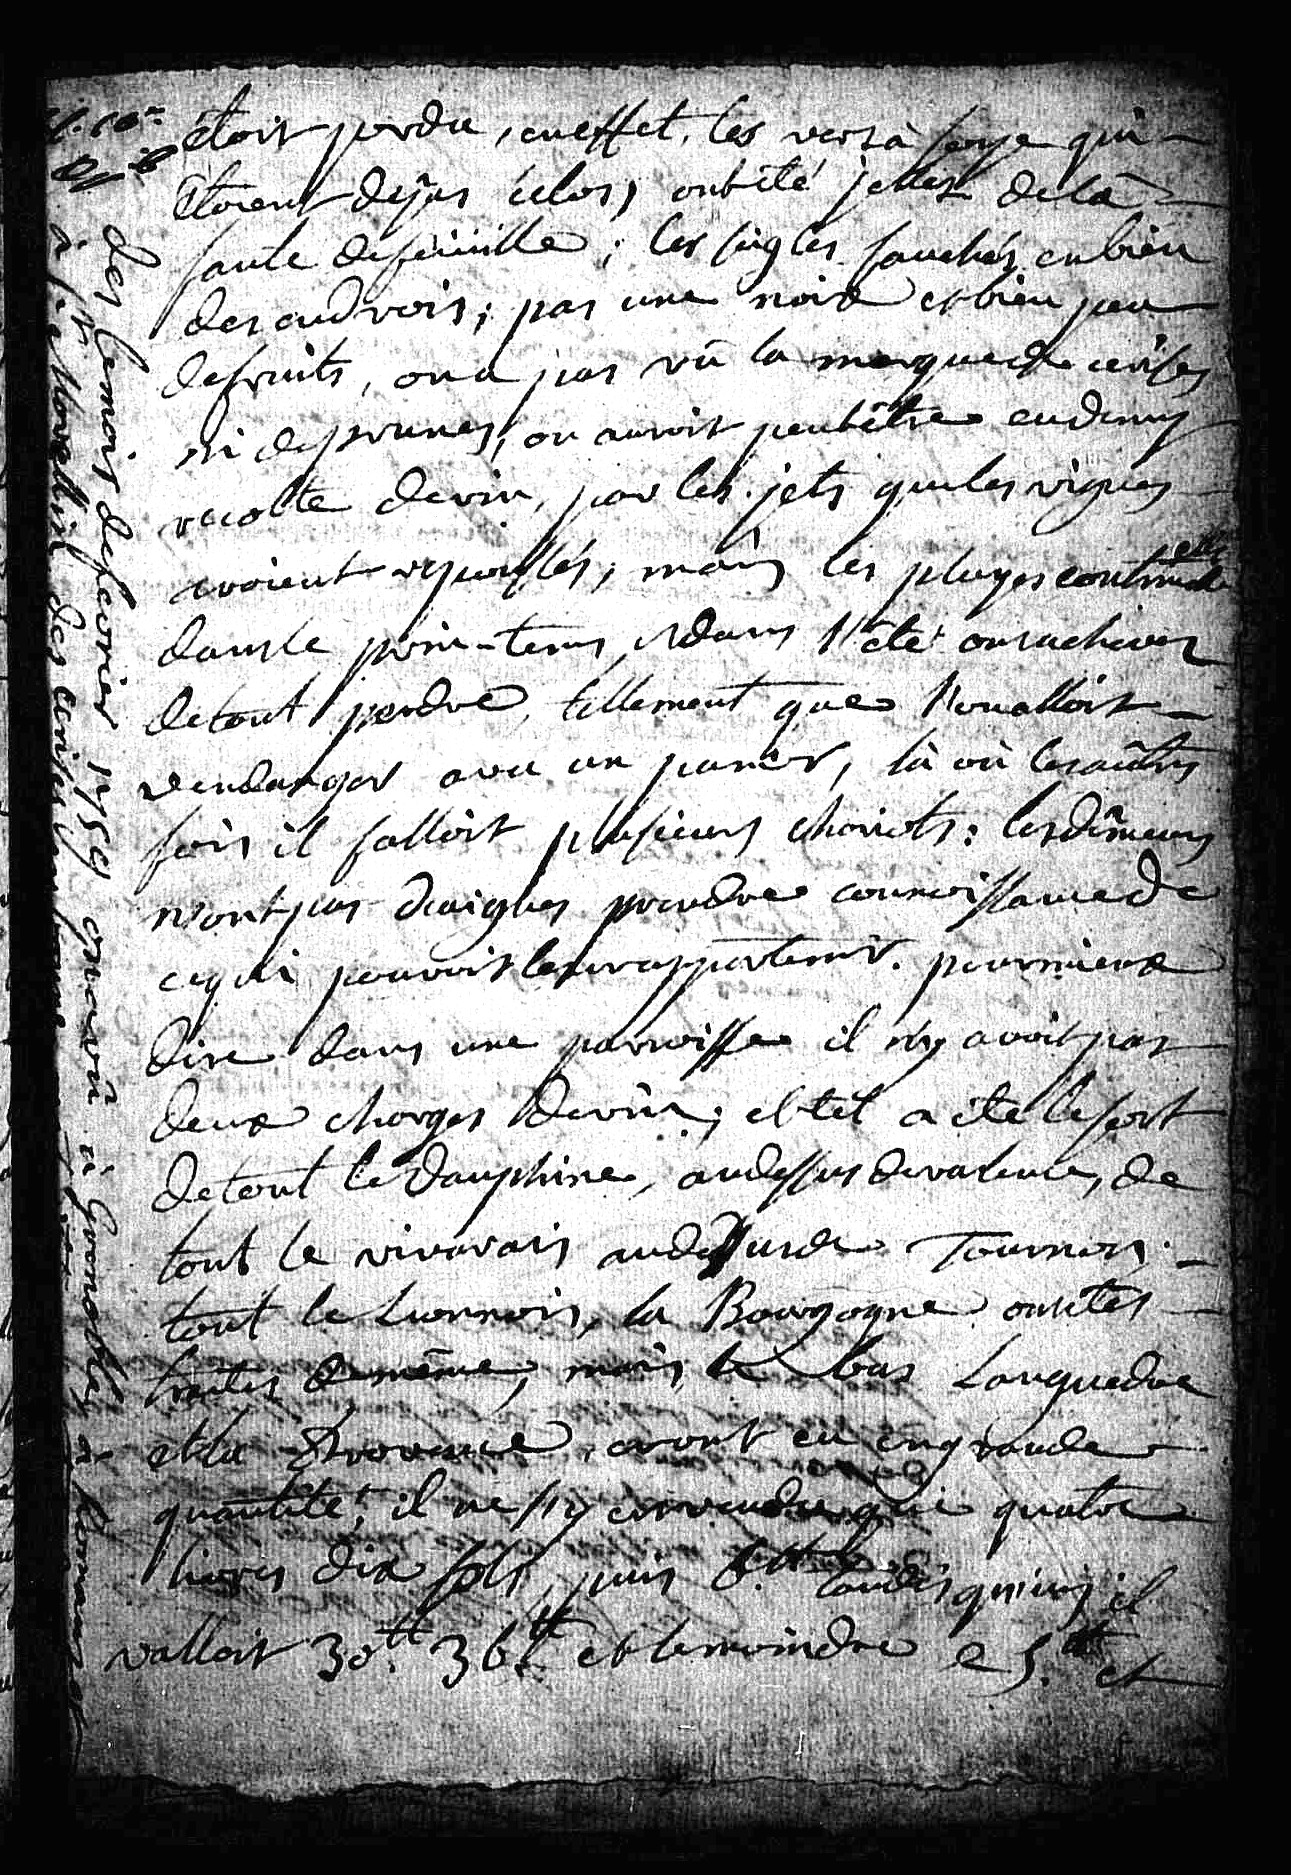 étoit perdu, en effet, les vers à soye qui
étoient dêjas éclos, ont été jettes de là
faute de feüille ; les sêigles fauchés en bien
des endrois ; pas une noix et bien peu
de fruits, on a pas vû la marque de cerises
ni de prunes, on auroit peutêtre eu demy
recolte de vin, par les jets que les vignes
avoient repoussés, mais les pluyes continuelles
dans le prin-tems et dans l'été ont achever
de tout perdre, tellement que l'on alloit
vendanger avec un panier, là où les autres
fois il falloit plusieurs chariots : les dîmeurs
n'ont pas daignes prendre connoissance de
ce qui pouvoit leur appartenir. pour mieux
dire dans une parroisse il n'y avoit pas
deux charges de vin ; et tel a été le sort
de tout le Dauphiné, au dessus de valence, de
tout le vivarais au dessus de Tournon.
tout le Lionnois, la Bourgogne ont étés
traités de même, mais le bas Languedoc
et la Provence, avont eu en grande
quantité, il ne s'y vendu que quatre
livres dix sols, puis 6.tt tandis qu'icy il
valloit 30.tt 36.tt et le moindre 5.tt et
des le mois de fevrier 1759 on a vû à Grenoble, à Romans et
à St. Marcellin des cerises